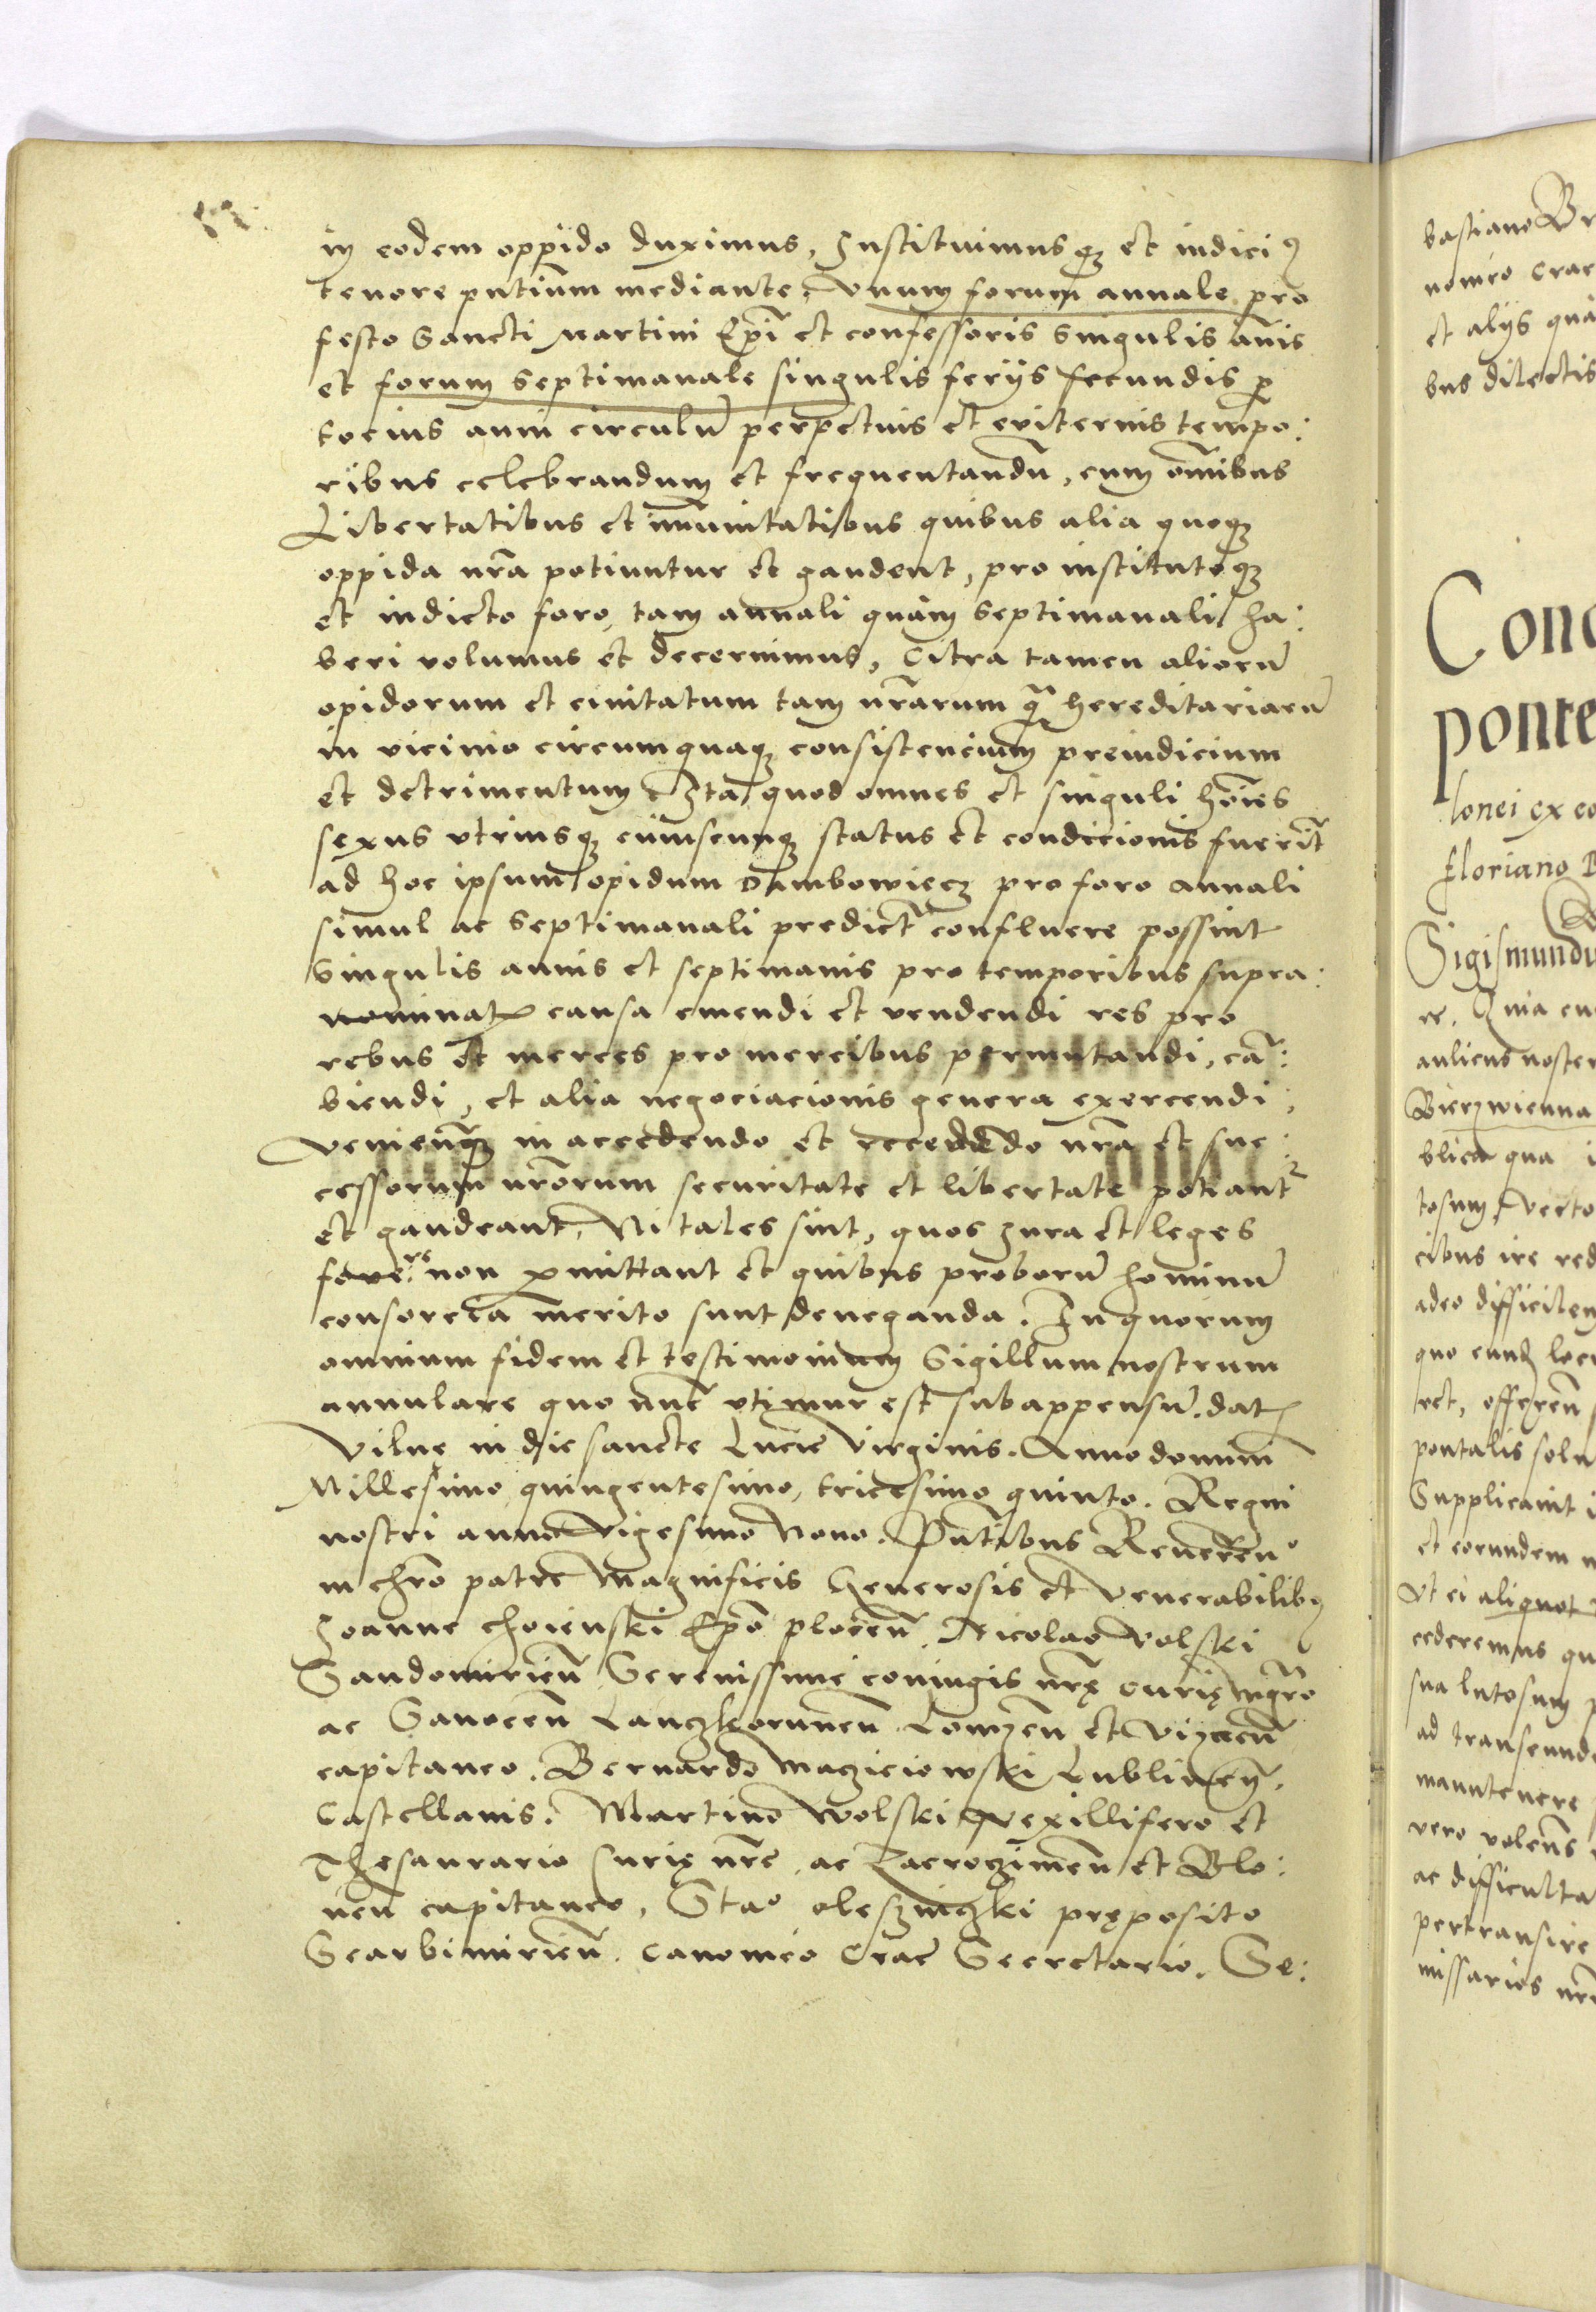 in eodem oppido duximus, Instituimusqꝫ et indiciꝰ
tenore pñtium mediante, vnum forum annale pro
festo Sancti Martini Epĩ et confessoris singulis ãnis
et forum septimanale singulis ferijs secundis ꝑ
tocius anni circulũ perpetuis et eviternis tempo:
ribus celebrandum et frequentandũ, cum õmibus
Libertatibus et im̃unitatibus quibus alia queqꝫ
oppida nr̃a potiuntur et gaudent, pro institutoqꝫ
et indicto foro, tam annali quàm septimanali ha:
beri volumus et decernimus, Citra tamen aliorũ
opidorum et ciuitatum tam nr̃arum q̃ hereditariarũ
in vicinio circumquaqꝫ consistencium preiudicium
et detrimentum Ita quod omnes et singuli hoĩes
sexus vtriusqꝫ cuiuscunqꝫ status et condicionis fuerĩt
ad hoc ipsum opidum Dambowiecz pro foro annali
simul ac septimanali predict̃ confluere possint
singulis annis et septimanis pro temporibus supra:
nominatꝭ causa emendi et vendendi res pro
rebus et merces pro mercibus permutandi, cã:
biendi, et alia negociacionis genera exercendi,
venienqꝫ in accedendo et recedendo nr̃a et suc:
cessorum nr̃orum securitate et libertate potiantᷣ
et gaudeant, Ni tales sint, quos Jura et leges
fovere non ꝑmittant et quibus proborũ hominũ
consorcia merito sunt deneganda. In quorum
omnium fidem et testimonium Sigillum nostrum
annulare quo nũc vtimur est subappensũ. datꝭ
Vilnę in die sancte Lucie virginis. Anno domini
Millesimo quingentesimo, tricesimo quinto. Regni
nostri anno vigesimo Nono. Pñtibus Reuerenᵒ
in chr̃o patre Magnificis Generosis et venerabilibꝰ
Joanne choienski Ep̃o plocen̄. Nicolao volski
Sandomirien̄ Serenissime coniugis nr̃ę curię mgr̃o
ac Sanocen̄ Lanczkorunen̄ Lomzen̄ et vizncen̄
capitaneo. Bernardo Macziciowski Lublinen̄.
Castellanis. Martino wolski vexillifero et
Thesaurario curię nr̃e ac Zacroczimen̄ et Blo:
nen̄ capitaneo, Staᵒ oleszniczki pręposito
Scarbimirien̄. Canonico Crac̃ Secretario. Se:
bastiano Br
nonico Crac
et alijs quã
bus dilectis
Conc
ponte
lonei ex eo
floriano B
Sigismundu
rc. Quia cu
aulicus noster
Bierzwienna
blica qua i
tosum vecto
cibus ire red
adeo difficilem
quo eund locu
ret, offeren̄
pontalis solu
Supplicauit i
et eorundem n
Vt ei aliquot
cederemus qu
sua lutosum p
ad transeunde
manutenere
vero volen̄s
ac difficulta
pertransire
missarios nr̃o